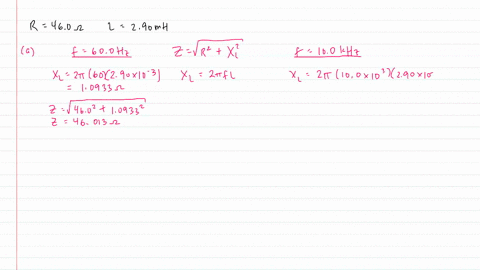 R = 46.0 Ω    L = 2.90 mH
(a)    f = 60.0 Hz    Z = √(R² + X_L²)    f = 10.0 kHz
X_L = 2π (60)(2.90 x 10⁻³)    X_L = 2πfL    X_L = 2π (10.0 x 10³)(2.90 x 10
= 1.0933 Ω
Z = √(46.0² + 1.0933²)
Z = 46.013 Ω